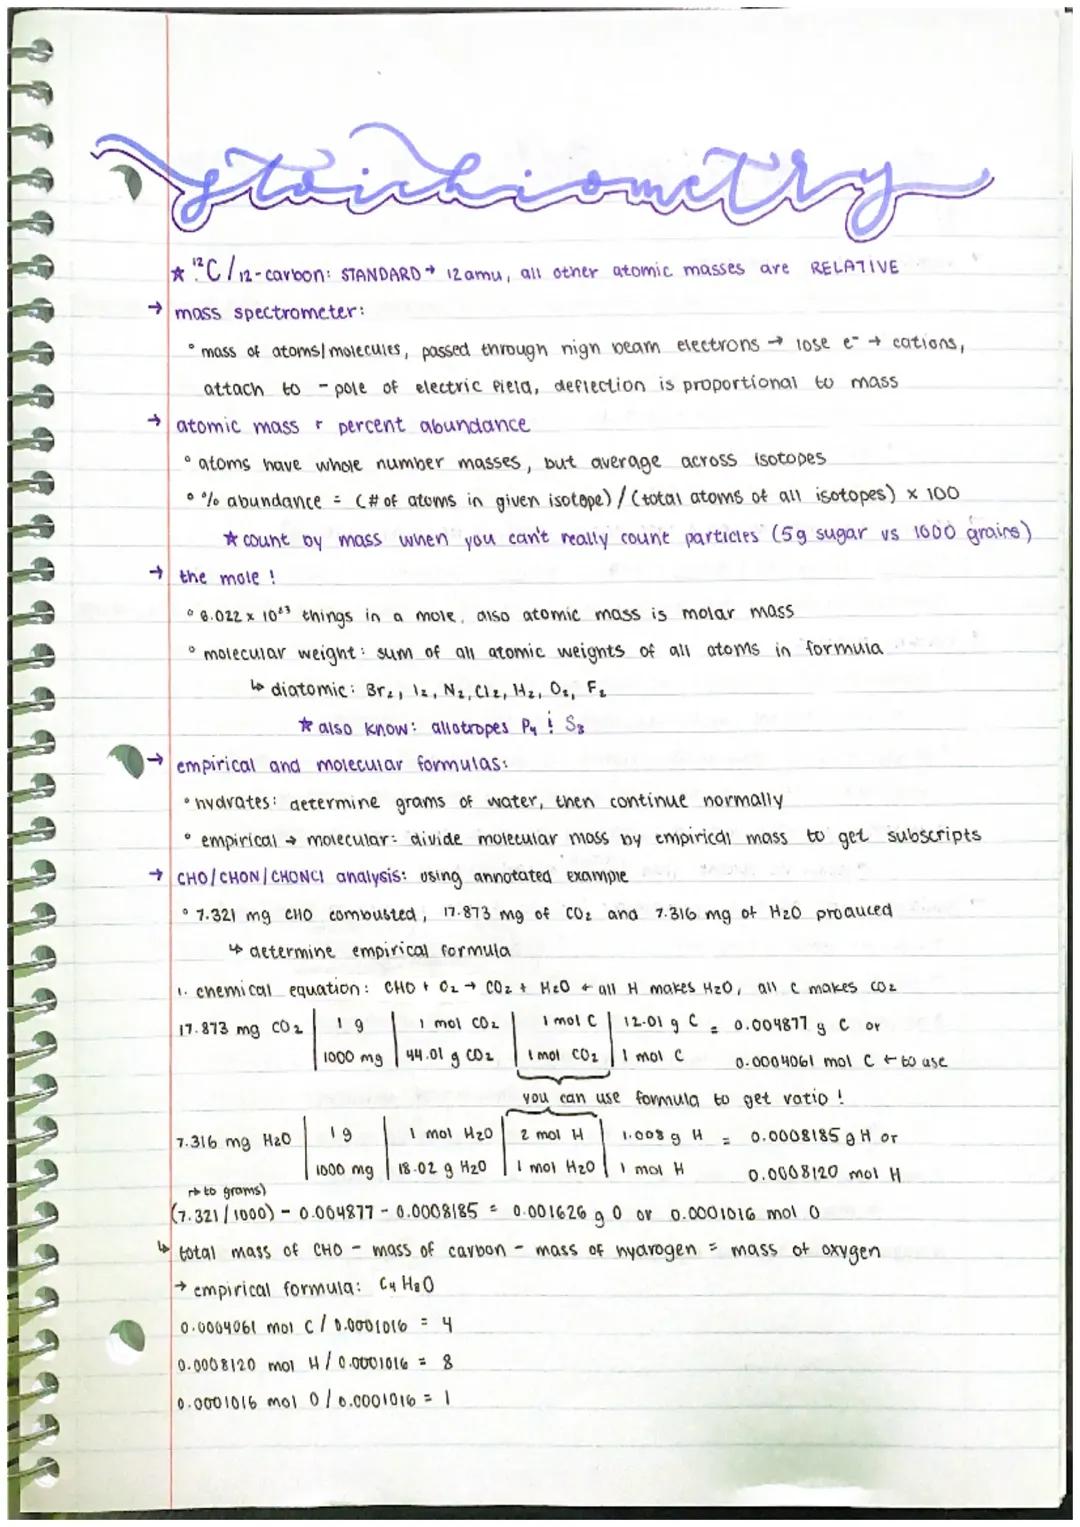 stoichiometry
★ ¹²C / 12-carbon: STANDARD → 12 amu, all other atomic masses are RELATIVE
→ mass spectrometer:
° mass of atoms/molecules, passed through high beam electrons → lose e⁻ → cations,
attach to - pole of electric field, deflection is proportional to mass
→ atomic mass + percent abundance
° atoms have whole number masses, but average across isotopes
° % abundance = (# of atoms in given isotope) / (total atoms of all isotopes) x 100
★ count by mass when you can't really count particles (5g sugar vs 1000 grains)
→ the mole!
° 6.022 x 10²³ things in a mole, also atomic mass is molar mass
° molecular weight: sum of all atomic weights of all atoms in formula
↳ diatomic: Br₂, I₂, N₂, Cl₂, H₂, O₂, F₂
★ also know: allotropes P₄ & S₈
→ empirical and molecular formulas:
° hydrates: determine grams of water, then continue normally
° empirical → molecular: divide molecular mass by empirical mass to get subscripts
→ CHO/CHON/CHONCl analysis: using annotated example
° 7.321 mg CHO combusted, 17.873 mg of CO₂ and 7.316 mg of H₂O produced
↳ determine empirical formula
1. chemical equation: CHO + O₂ → CO₂ + H₂O ← all H makes H₂O, all C makes CO₂
17.873 mg CO₂ | 1 g | 1 mol CO₂ | 1 mol C | 12.01 g C = 0.004877 g C or
1000 mg | 44.01 g CO₂ | 1 mol CO₂ | 1 mol C 0.0004061 mol C ← to use
you can use formula to get ratio!
7.316 mg H₂O | 1 g | 1 mol H₂O | 2 mol H | 1.008 g H = 0.0008185 g H or
1000 mg | 18.02 g H₂O | 1 mol H₂O | 1 mol H 0.0008120 mol H
↱ to grams)
(7.321 / 1000) - 0.004877 - 0.0008185 = 0.001626 g O or 0.0001016 mol O
↳ total mass of CHO - mass of carbon - mass of hydrogen = mass of oxygen
→ empirical formula: C₄H₈O
0.0004061 mol C / 0.0001016 = 4
0.0008120 mol H / 0.0001016 = 8
0.0001016 mol O / 0.0001016 = 1